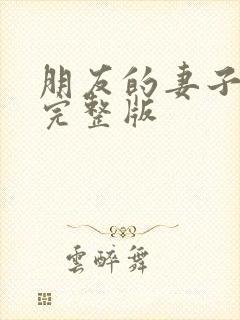 朋友的妻子
完整版
雲醉舞